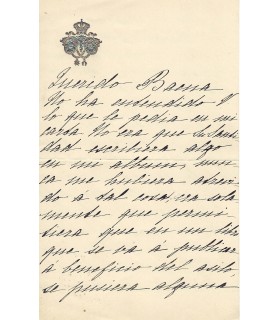 Querido Baena
No ha entendido V
lo que le pedia en mi
carta No era que Su Santi
dad escribiera algo
en mi album, nun
ca me hubiera atrevi
do á tal cosa; era sola
mente que permi
tiera que en un libro
que se vá á publicar
á beneficio del asilo,
se pusiera alguna